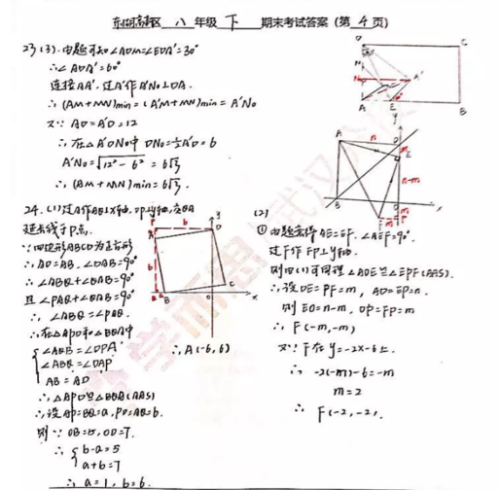 东湖高新区 八 年级 下 期末考试答案(第 4 页)
23(3).由题可知∠ADM=∠EDA'=30°
∴∠ADA'=60°
连接AA',过A'作A'N₀⊥DA.
∴(AM+MN)min=(A'M+MN)min=A'N₀
又∵AD=A'D=12
∴在△A'DN₀中 DN₀=½A'D=6
A'N₀=√12²-6²=6√3.
∴(AM+MN)min=6√3.
24.(1)过A作AQ⊥X轴,DP⊥y轴,交QA
延长线于P点.
∵四边形ABCD为正方形
∴AD=AB,∠DAB=90°
∴∠ABQ+∠QAB=90°
且∠PAD+∠QAB=90°
∴∠ABQ=∠PAD.
∴在△APD和△BQA中
∠AQB=∠DPA
∠ABQ=∠DAP
AB=AD
∴△APD≌△BQA(AAS)
∴设AP=BQ=a,PD=AQ=b.
则∵OB=5,OD=7.
∴ b-a=5
a+b=7
∴a=1,b=6.
∴A(-6,6)
(2)
①由题意得AE=EF.∠AEF=90°.
过F作FP⊥y轴.
则由(1)可同理△ADE≌△EPF(AAS).
∴设DE=PF=m,AD=EP=n.
则EO=n-m,OP=FP=m
∴F(-m,-m)
又∵F在y=-2x-6上.
∴-2(-m)-6=-m
m=2
∴F(-2,-2).